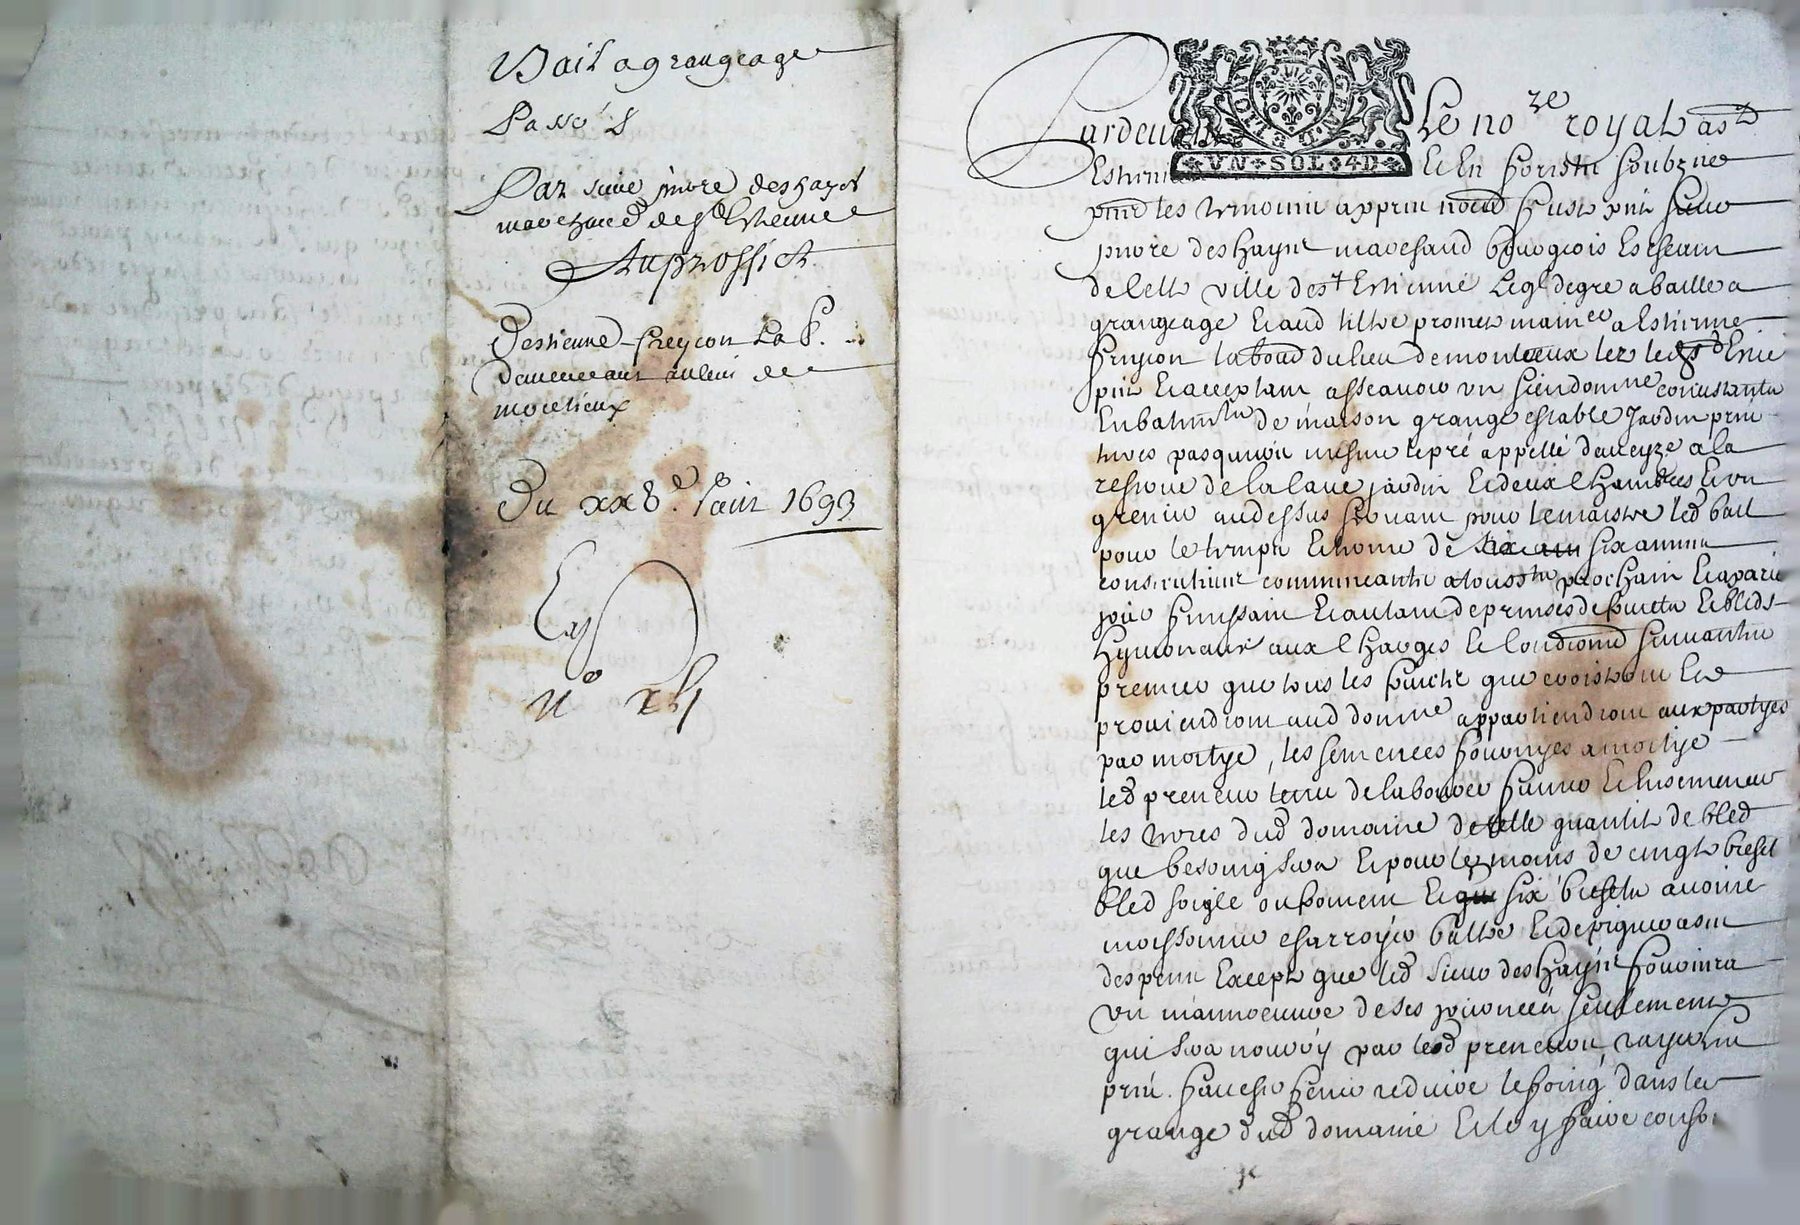 Bail a grangeage
Passé
Par sieur pierre deshayes
marchand de st Estienne
Au proffict
Destienne freycon Lab.
demeurant au lieu de
montieux
Du xx8e Aout 1693
Pardevant Le nore royal a st
Estienne Et En forestz soubzne
pnt les tesmoins apprès nommé fust pnt sieur
pierre deshayes marchand bourgeois Eschevin
de lette ville de st Estienne Leql de gre a baille a
grangeage Et aud tiltre promet maintr a Estienne
freycon labour du lieu de montieux lez led st Estie
pnt Et acceptant assavoir un sien domne consistante
En batimts de maison grange estable Jardin prés
terres pasquier mesme le pré appellé deveyze a la
reserve de la cave jardin Et deux chambres Et un
grenier au dessus servant pour le maistre led bail
pour le temps Et terme de six années
consecutives commencante a touss prochain Et a pareil
jour finissant Et autant de prinses de fruits Et bleds
Hyvernaux aux charges Et conditions suivantes
premier que tous les fruicts que croistront Et
proviendront aud domne appartiendront aux partyes
par moitye, les semences fournyes a moitye
led preneur tenu de labourer fumer Et ensemencer
les terres dud domaine de telle quantité de bled
que besoing sera Et pour le moins de cinqte bichets
bled soigle ou froment Et six bichets avoine
moissonner charroyer battre Et depiquer a ses
despens Excepté que led sieur deshayes fournira
un manoeuvre de ses journées seulement
qui sera nourry par led preneur, rayer les
prés. faucher fener reduire le foing dans la
grange dud domaine Et le y faire conso